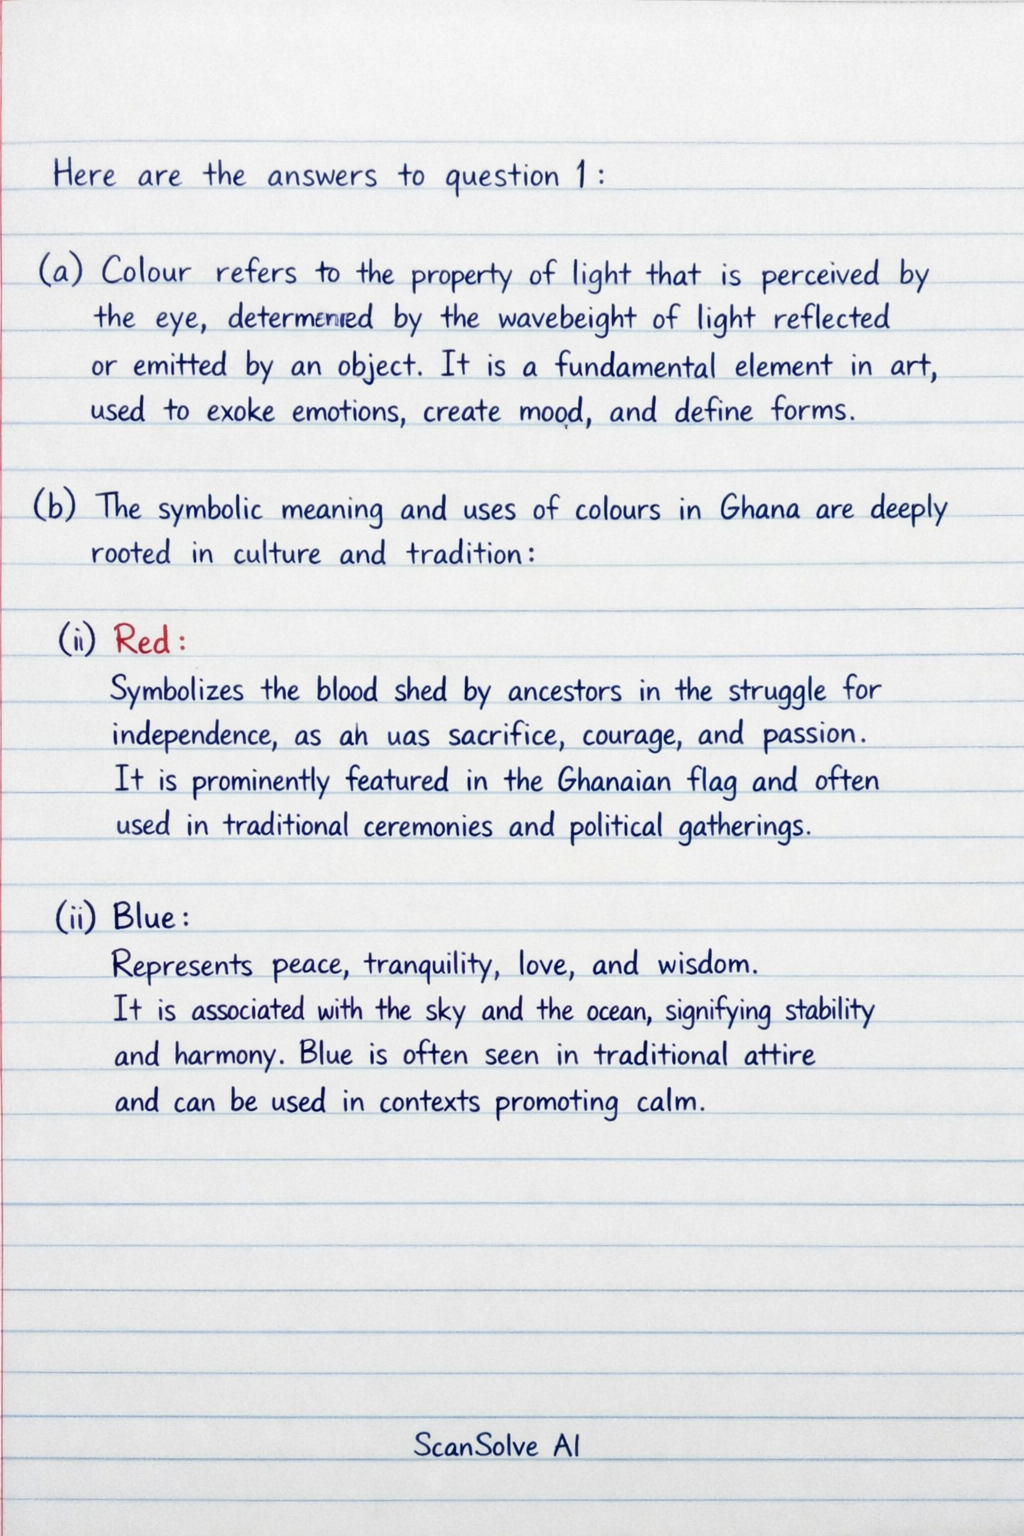 Here are the answers to question 1:
(a) Colour refers to the property of light that is perceived by
the eye, by the wavebeight of light reflected
or emitted by an object. It is a fundamental element in art,
used to exoke emotions, create mood, and define forms.
(b) The symbolic meaning and uses of colours in Ghana are deeply
rooted in culture and tradition:
(ii) Red:
Symbolizes the blood shed by ancestors in the struggle for
independence, as ah uas sacrifice, courage, and passion.
It is prominently featured in the Ghanaian flag and often
used in traditional ceremonies and political gatherings.
(ii) Blue:
Represents peace, tranquility, love, and wisdom.
It is associated with the sky and the ocean, signifying stability
and harmony. Blue is often seen in traditional attire
and can be used in contexts promoting calm.
ScanSolve AI